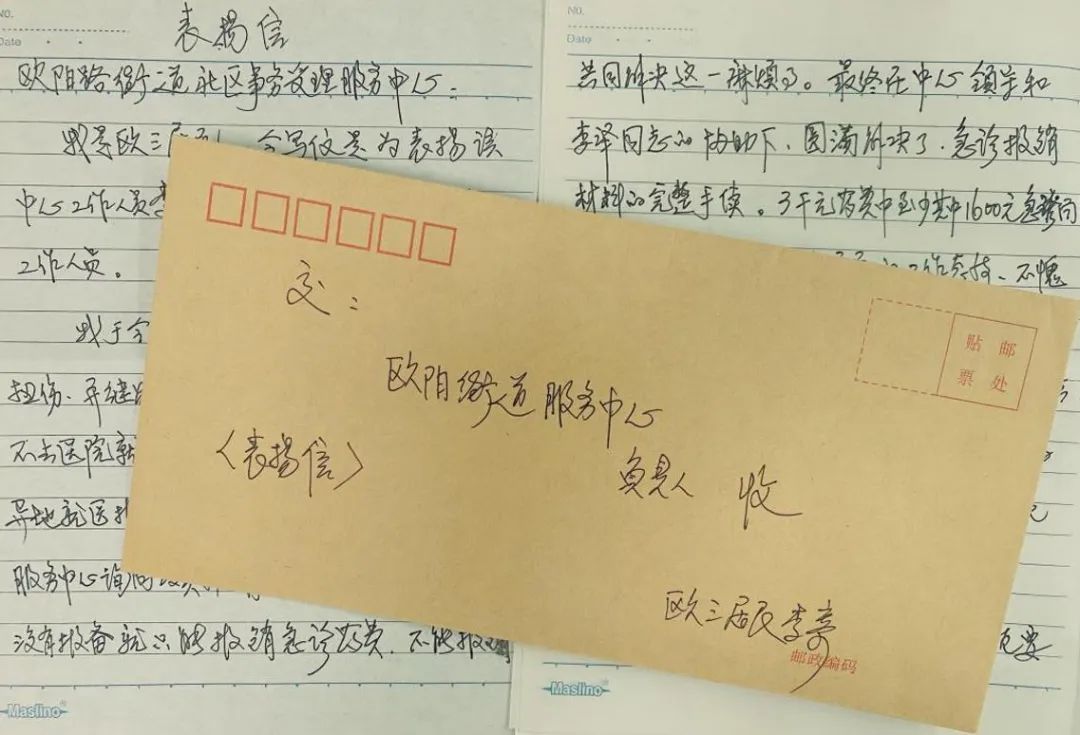 No.
Date
表扬信
欧阳路街道社区事务受理服务中心：
我是欧三居 今写信是为表扬该
中心工作人员李
工作人员。
我于今
扭伤、再继
不去医院就
异地就医报
服务中心询问
没有报备就只能报销急诊药费，不能报
Maslino
No.
Date
共同解决这一麻烦事。最终在中心领导和
李泽同志的协助下，圆满解决了急诊报销
材料的完整手续。3千元药费中至少其中1600元急诊
工作 不愧
要
Maslino
交：
欧阳街道服务中心
〈表扬信〉
负责人 收
欧三居民李
贴 邮
票 处
邮政编码